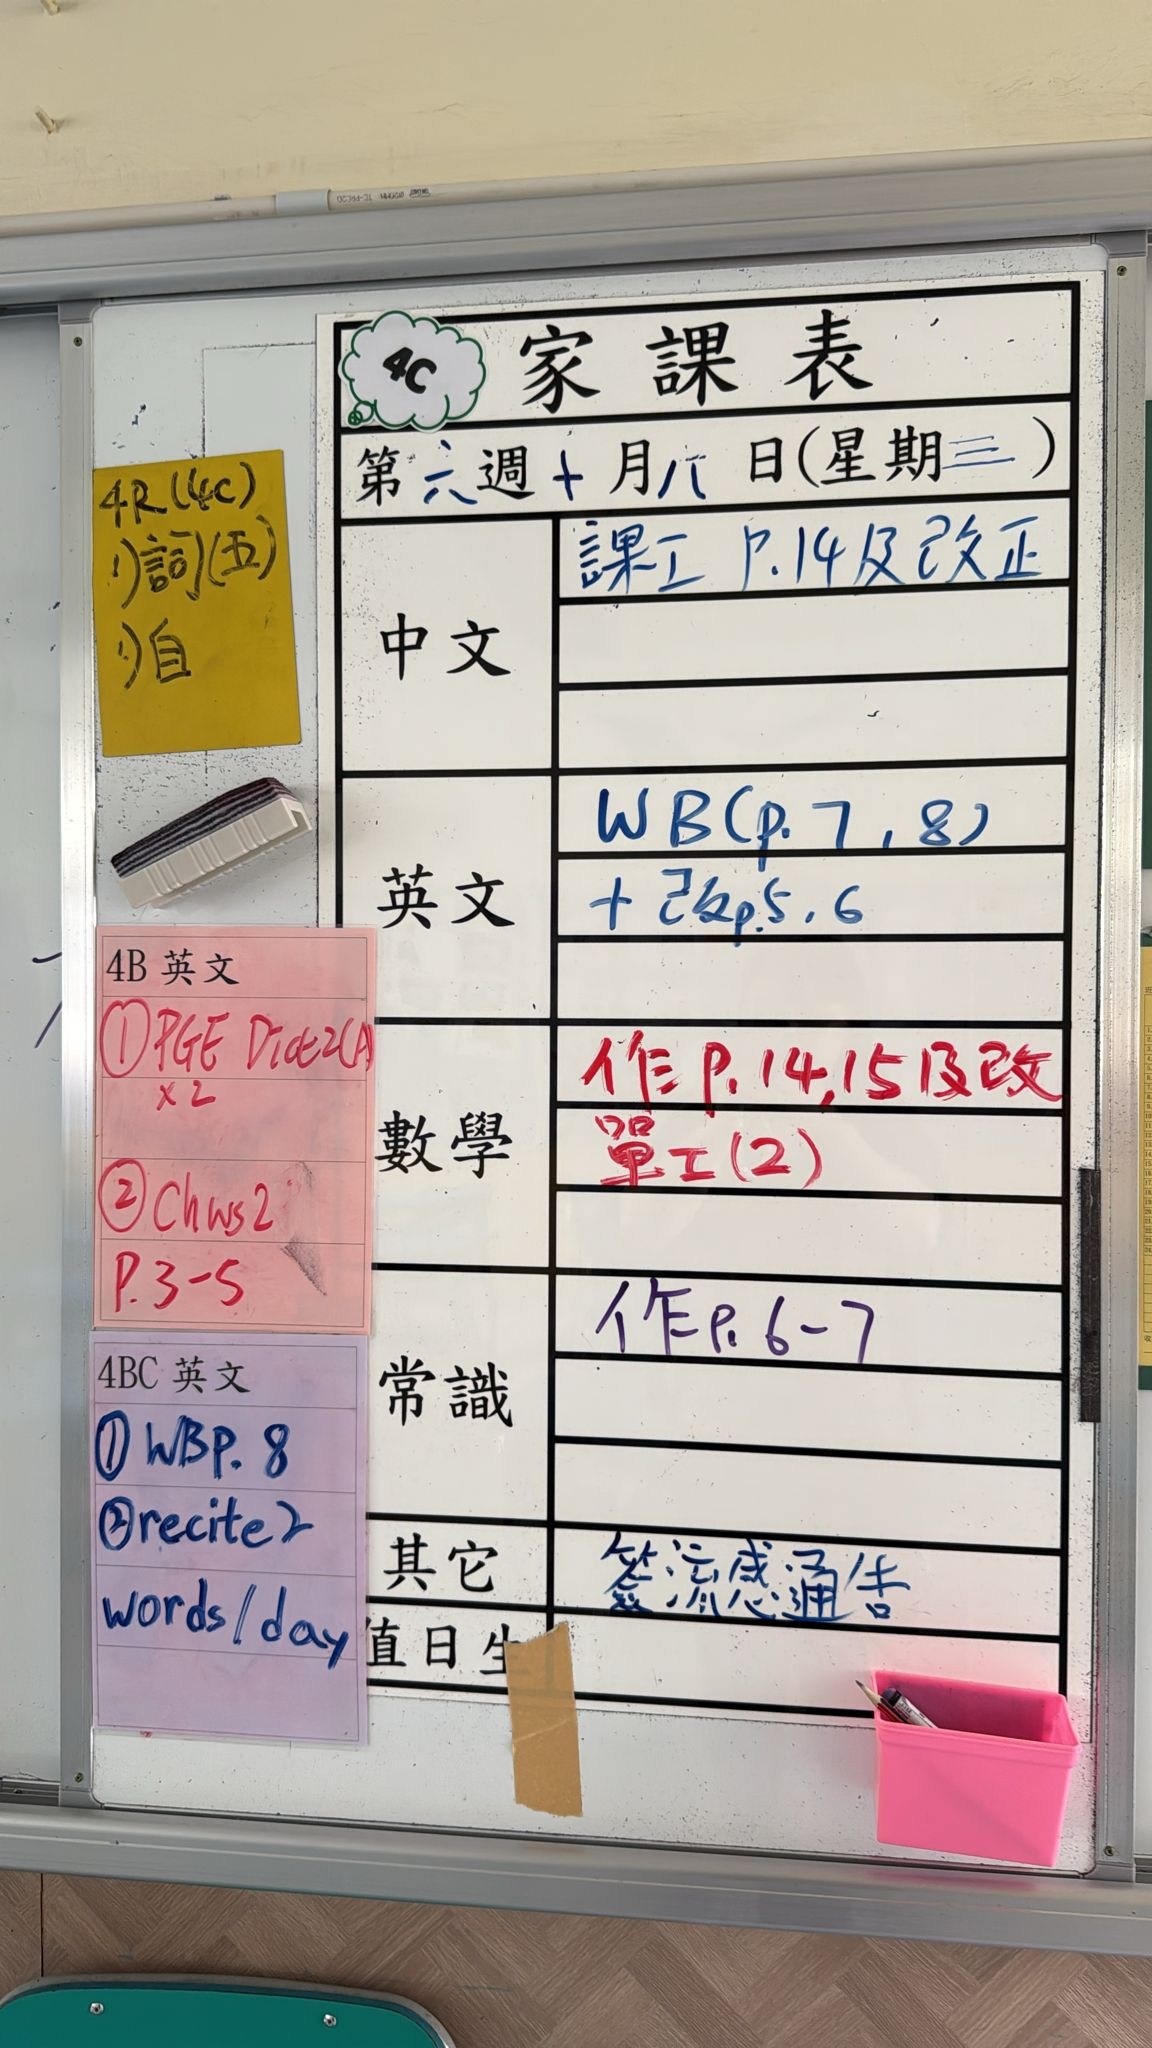 4C 家課表
第六週十月八日(星期三)
中文
課工 P.14及改正
英文
WB(p.7,8)
+ 改p.5,6
數學
作P.14,15及改
單工(2)
常識
作P.6-7
其它
簽流感通告
值日生
4R(4C)
1)詞(五)
1)自
4B 英文
①PGE Dict2(A)
x2
②Chws2
P.3-5
4BC 英文
① WBP.8
②recite2
words/day